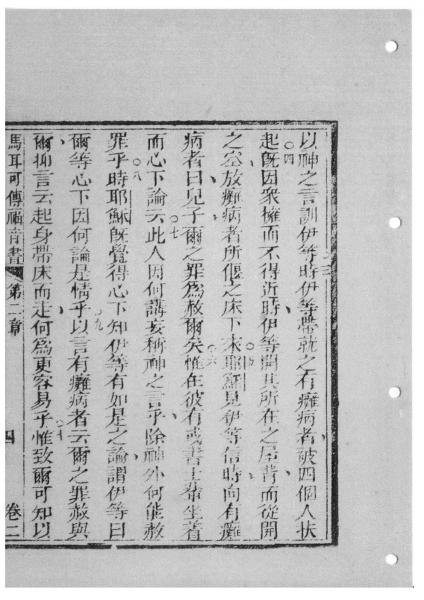 以神之言訓伊等時伊等帶就之有癱病者被四個人扶
起既因衆擁而不得近時伊等開其所在之屋背而從開
之空放癱病者所偃之床下來耶穌見伊等信時向有癱
病者曰兒子爾之罪爲赦爾矣惟在彼有或書士輩坐着
而心下論云此人因何講妄稱神之言乎除神外何能赦
罪乎時耶穌既覺得心下知伊等有如是之論謂伊等曰
爾等心下因何論是情乎以言有癱病者云爾之罪赦與
爾抑言云起身帶床而走何爲更容易乎惟致爾可知以
馬耳可傳福音書 第二章 四 卷二